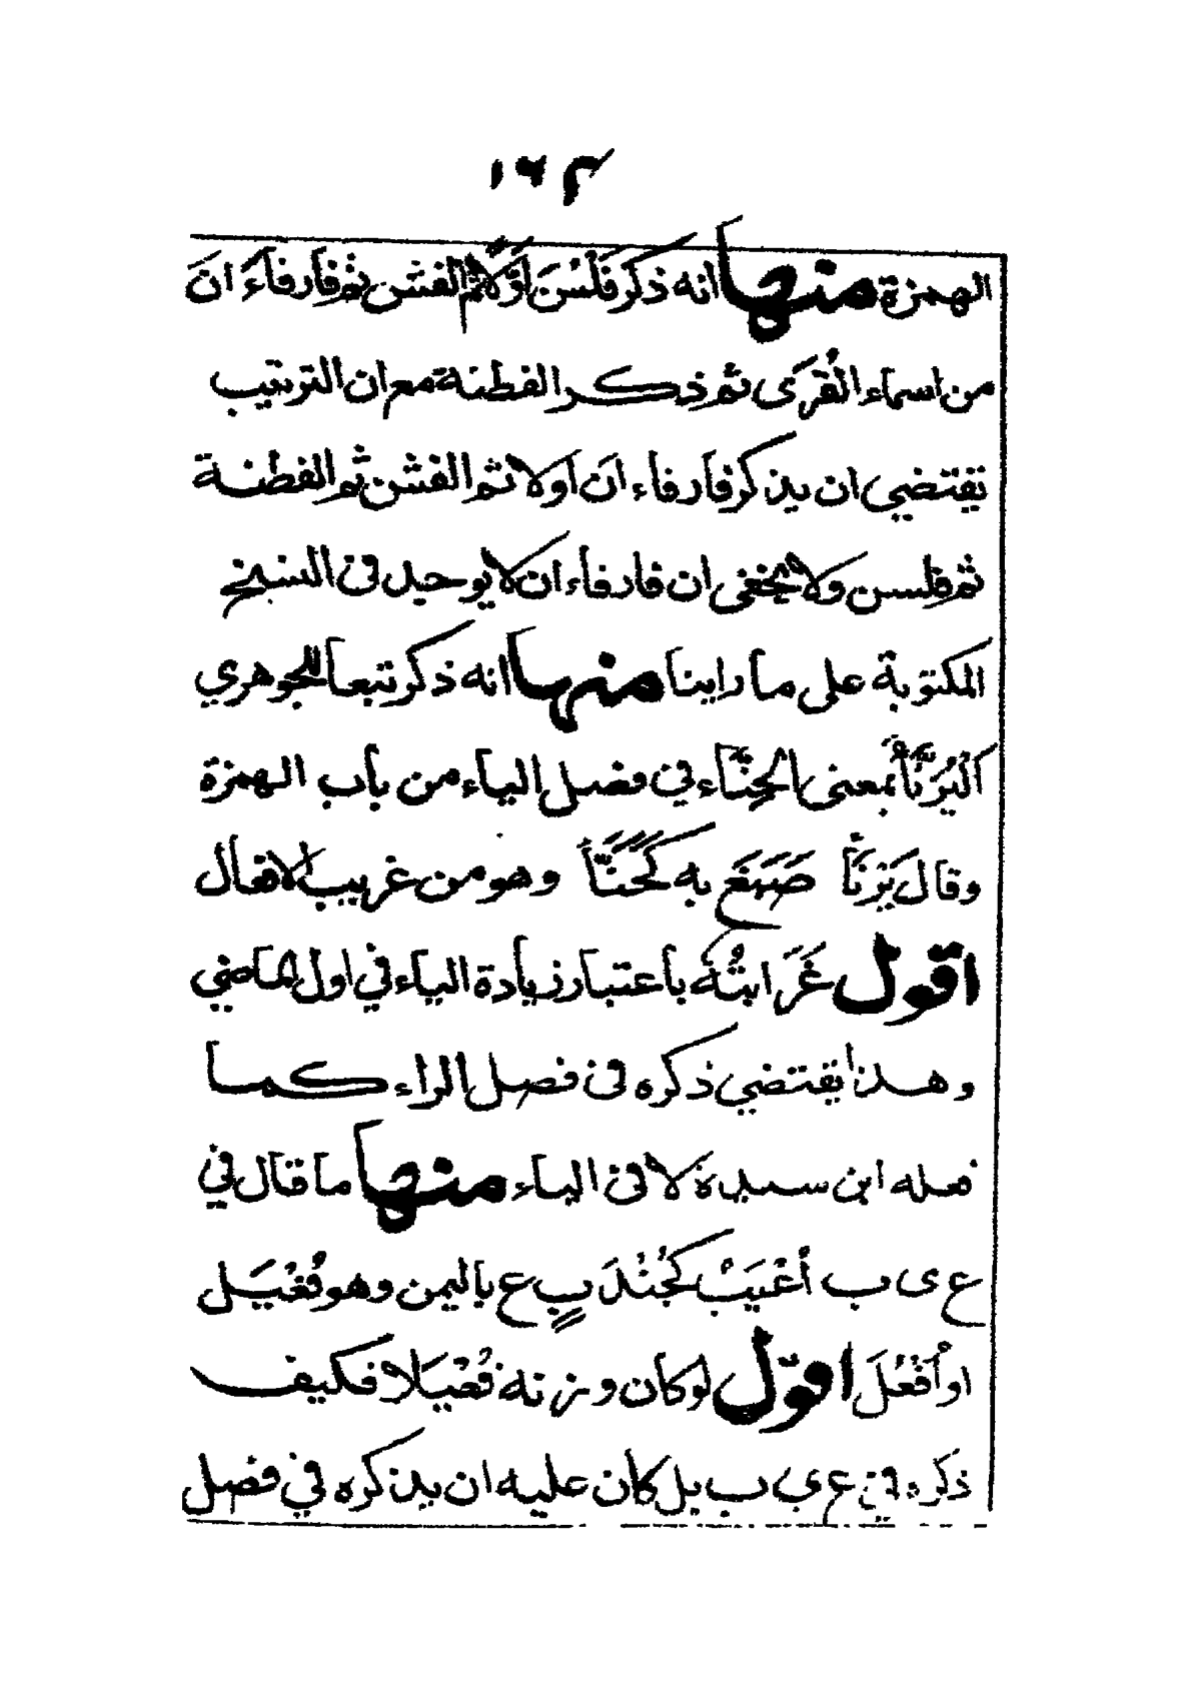 ١٦٢
الهمزة منها انه ذكر فَلَسْنَ اوّلاً ثم الفشن ثم فارفاءَ انَ
من اسماء القُرَى ثم ذكر الفطنة مع ان الترتيب
يقتضي ان يذكر فارفاء انَ اولا ثم الفشن ثم الفطنة
ثم فلسن ولا يخفى ان فارفاء ان لا يوجد في النسخ
المكتوبة على ما راينا منها انه ذكر تبعا للجوهري
اَلْيُرَنَّأُ بمعنى الحِنَّاء في فصل الياء من باب الهمزة
وقال يَرْنَأَ صَبَغَ به كَحَنَّأَ وهو من غريب الافعال
اقول غَرَابتُهُ باعتبار زيادة الياء في اول الماضي
وهذا يقتضي ذكره في فصل الراء كما
فعله ابن سيده لا في الياء منها ما قال في
ع ى ب أَعْيَبُ كَجُنْدَبٍ ع باليمن وهو فُعْيَل
او أَفْعَلَ اقول لو كان وزنه فُعْيَلا فكيف
ذكره في ع ى ب بل كان عليه ان يذكره في فصل